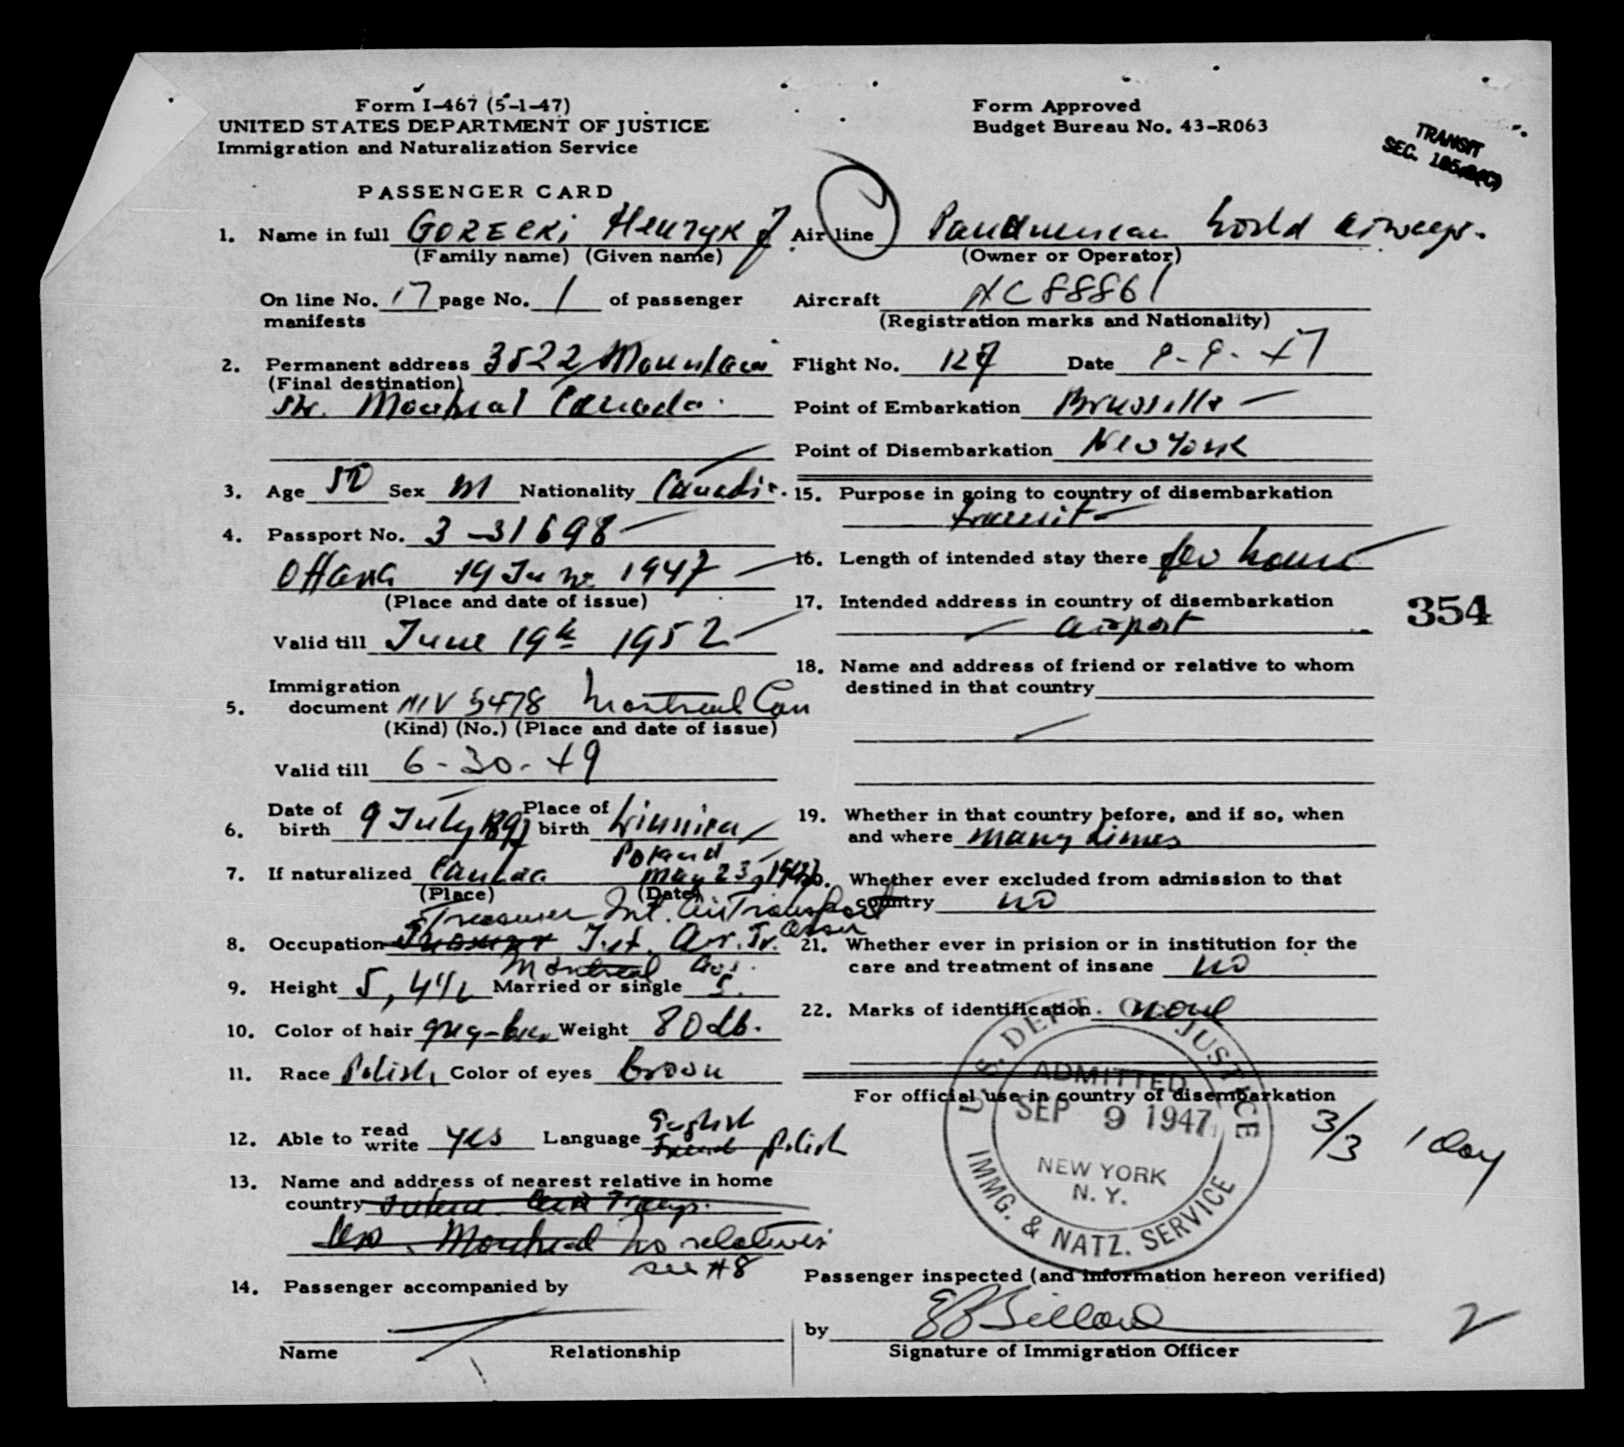 Form I-467 (5-1-47)
UNITED STATES DEPARTMENT OF JUSTICE
Immigration and Naturalization Service
PASSENGER CARD
1. Name in full GORECKI Henryk J
(Family name) (Given name)
On line No. 17 page No. 1 of passenger
manifests
2. Permanent address 3522 Mountain
(Final destination)
Str. Montreal Canada.
3. Age 50 Sex M Nationality
4. Passport No. 3-31698
Ottawa 19 June 1947
(Place and date of issue)
Valid till June 19th 1952
Immigration
5. document NIV 5478 Montreal Can
(Kind) (No.) (Place and date of issue)
Valid till 6-30-49
Date of Place of
6. birth 9 July 1897 birth
Poland
7. If naturalized Canada May 23,
(Place) (Date)
Treasurer Int. Air Transport
Assn
8. Occupation Int. Air. Tr.
Montreal
9. Height 5, 4 1/2 Married or single S.
10. Color of hair grey- Weight lb.
11. Race Polish Color of eyes brown
12. Able to read write yes Language English Polish
13. Name and address of nearest relative in home
country
Montreal no relatives
see #8
14. Passenger accompanied by
Name Relationship
Form Approved
Budget Bureau No. 43-R063
TRANSIT
SEC.
Air line Panamerican World Airways.
(Owner or Operator)
Aircraft NC 88861
(Registration marks and Nationality)
Flight No. 127 Date 9-9-47
Point of Embarkation Brussells
Point of Disembarkation New York
15. Purpose in going to country of disembarkation
transit
16. Length of intended stay there few hours
17. Intended address in country of disembarkation
airport
354
18. Name and address of friend or relative to whom
destined in that country
19. Whether in that country before, and if so, when
and where many times
20. Whether ever excluded from admission to that
country no
21. Whether ever in prision or in institution for the
care and treatment of insane no
22. Marks of identification none
For official use in country of disembarkation
U.S. DEPT. OF JUSTICE
ADMITTED
SEP 9 1947
NEW YORK
N. Y.
IMMG. & NATZ. SERVICE
3/3 1 day
Passenger inspected (and information hereon verified)
by
Signature of Immigration Officer
2